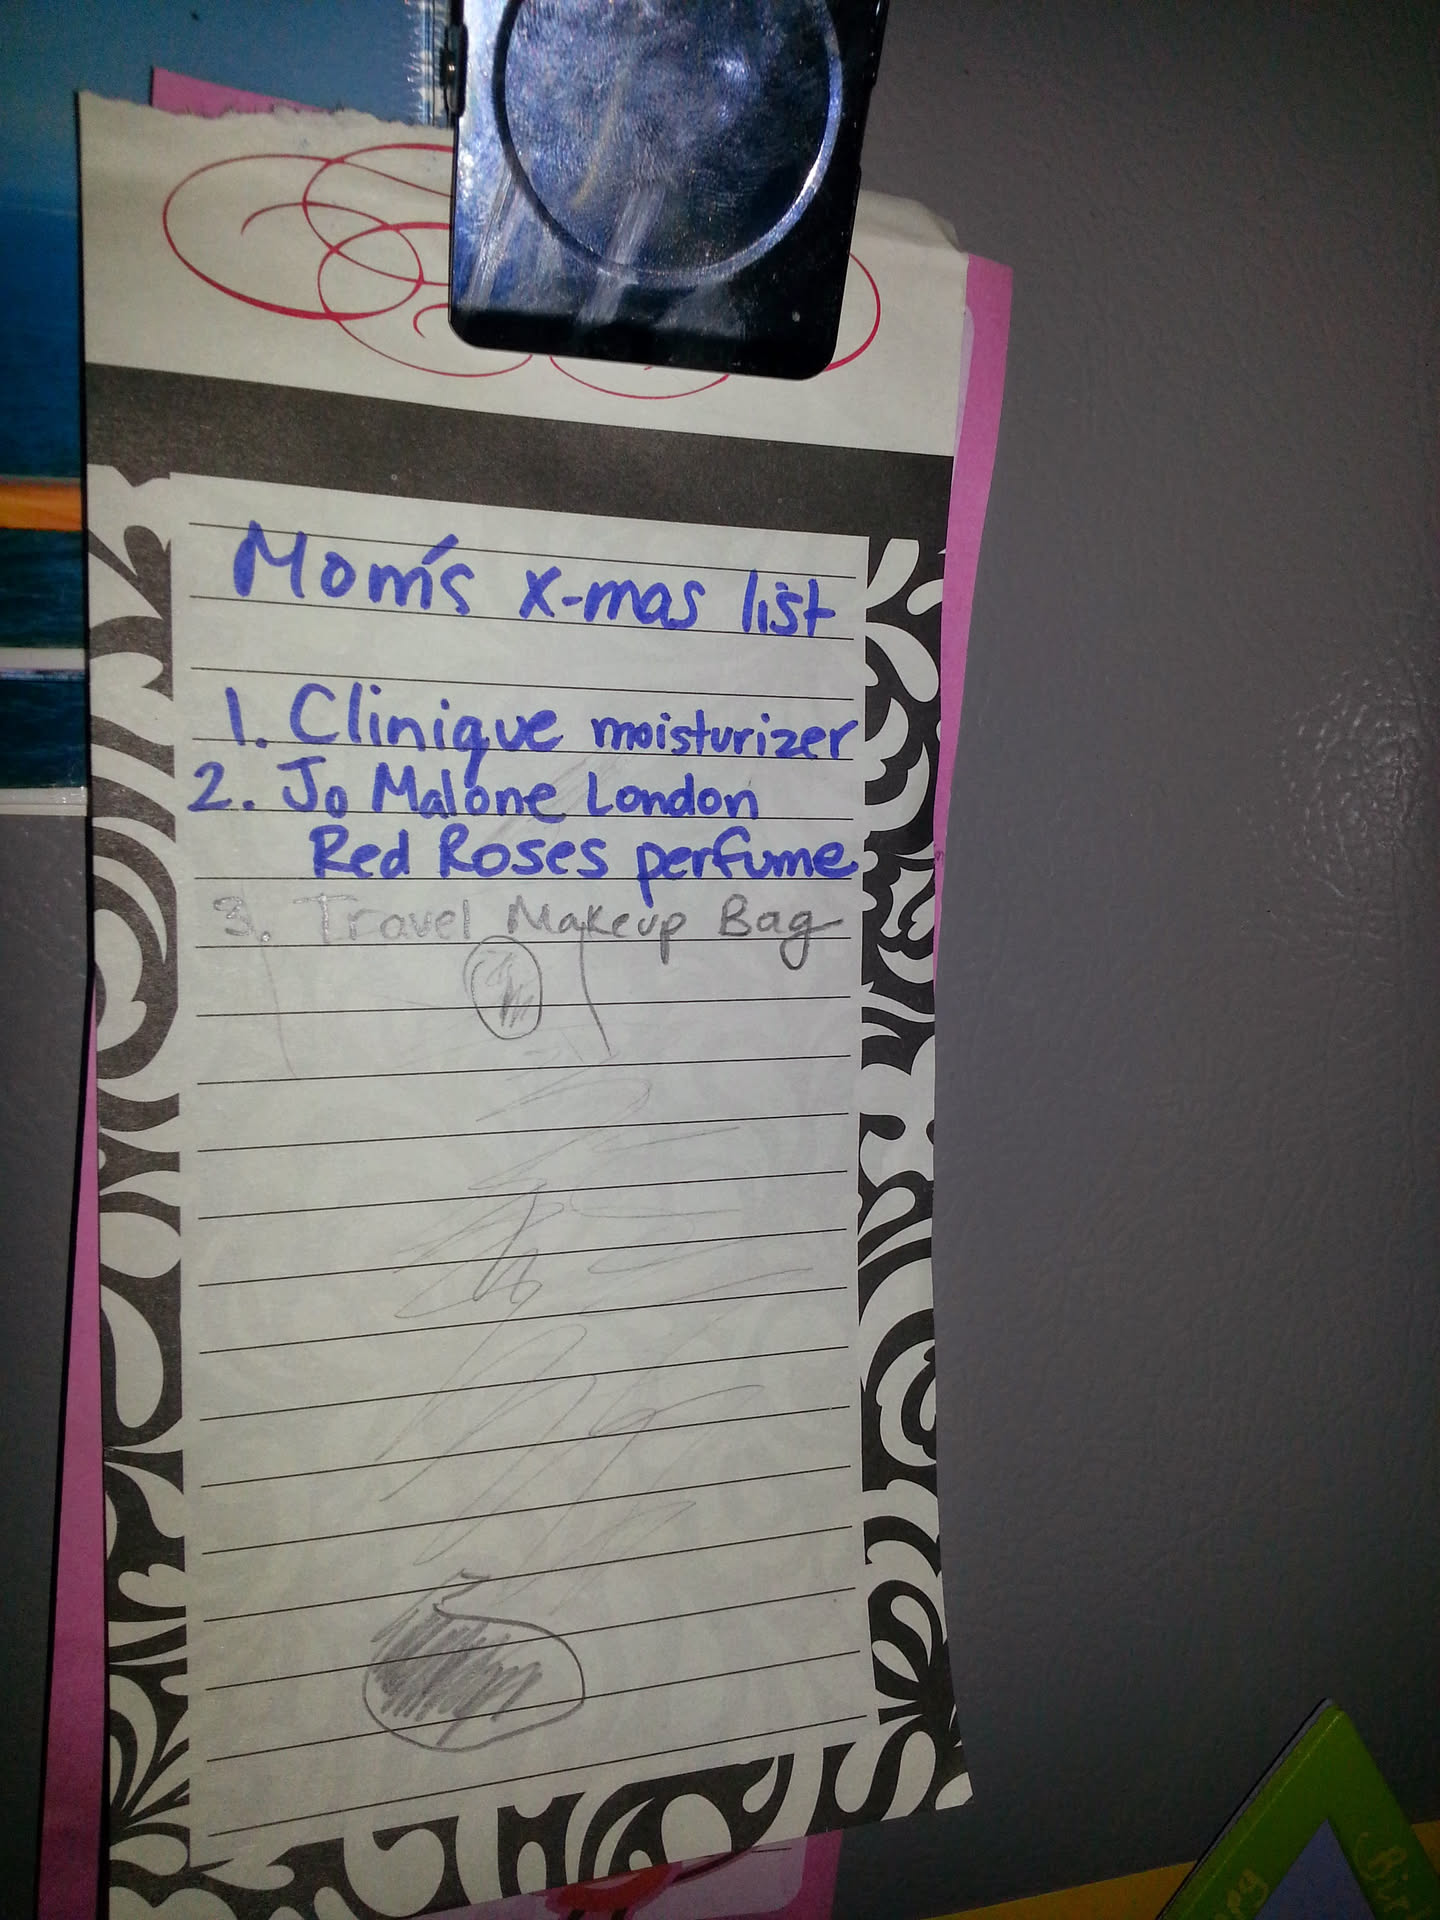 Mom's x-mas list
1. Clinique moisturizer
2. Jo Malone London
Red Roses perfume
3. Travel Makeup Bag